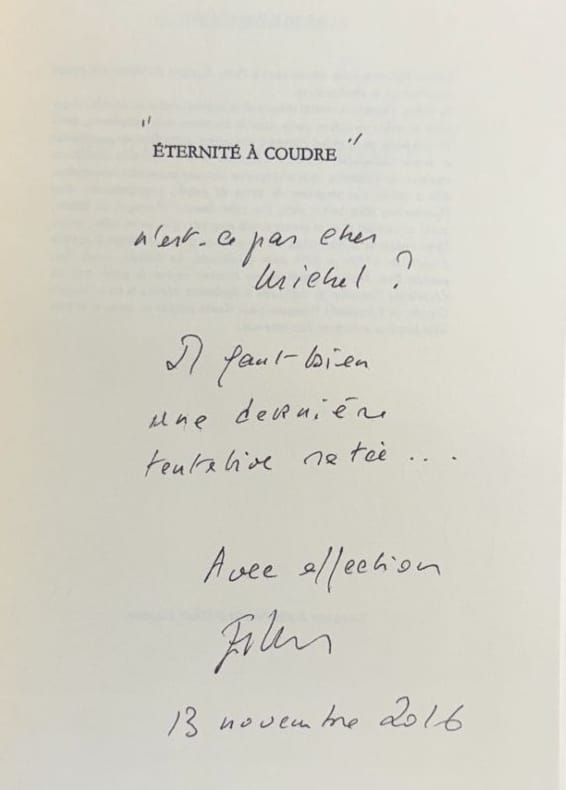 " ÉTERNITÉ À COUDRE "
n'est-ce pas cher
Michel ?
Il faut bien
une dernière
tentative ratée ...
Avec affection
13 novembre 2016